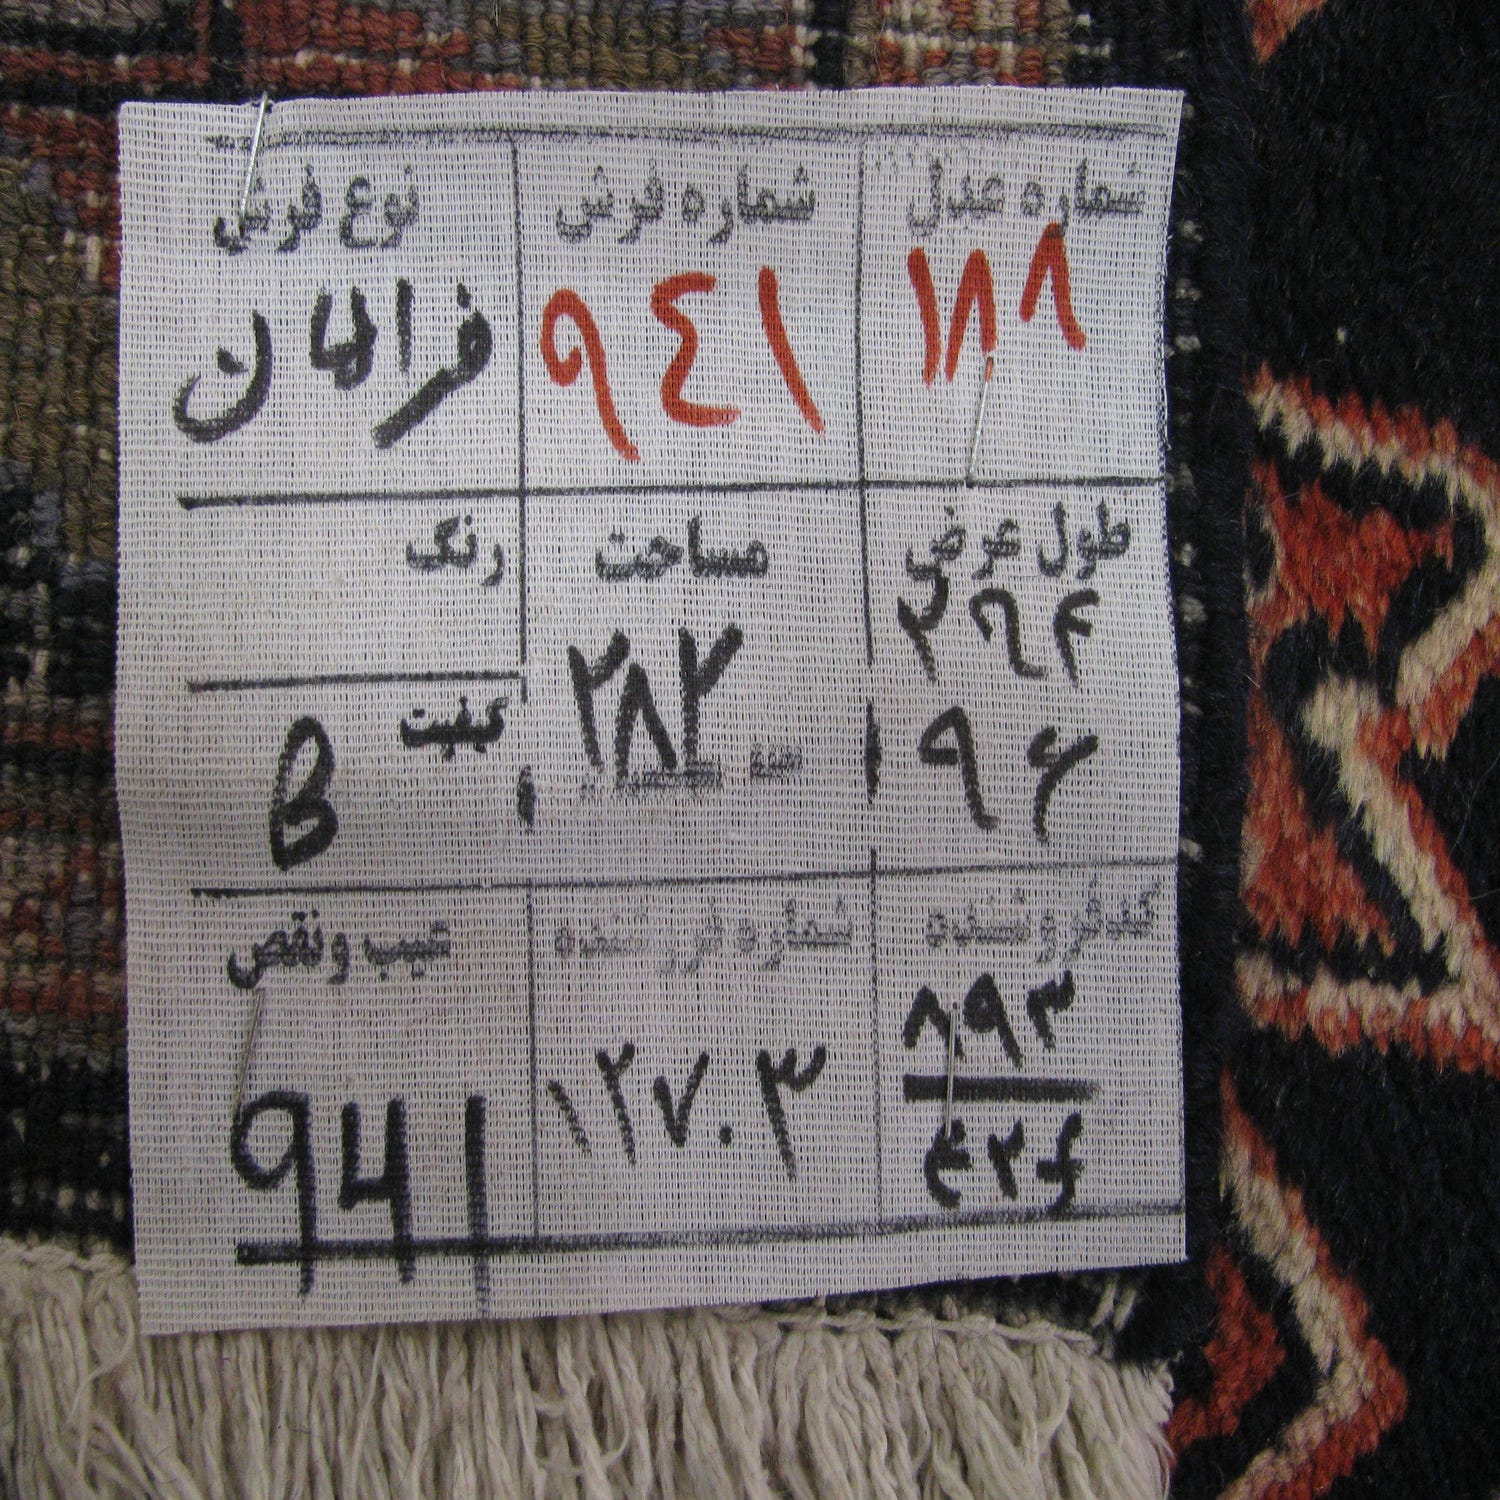 شماره عدل
۱۸۸
شماره فرش
۹٤۱
نوع فرش
فراهان
طول عرض
۲۹۴
۹۶
مساحت
۲۸۲
رنگ
کیفیت
B
کد فروشنده
۸۹۳
۴۲۴
شماره فروشنده
۱۲۷۰۳
عیب و نقص
941